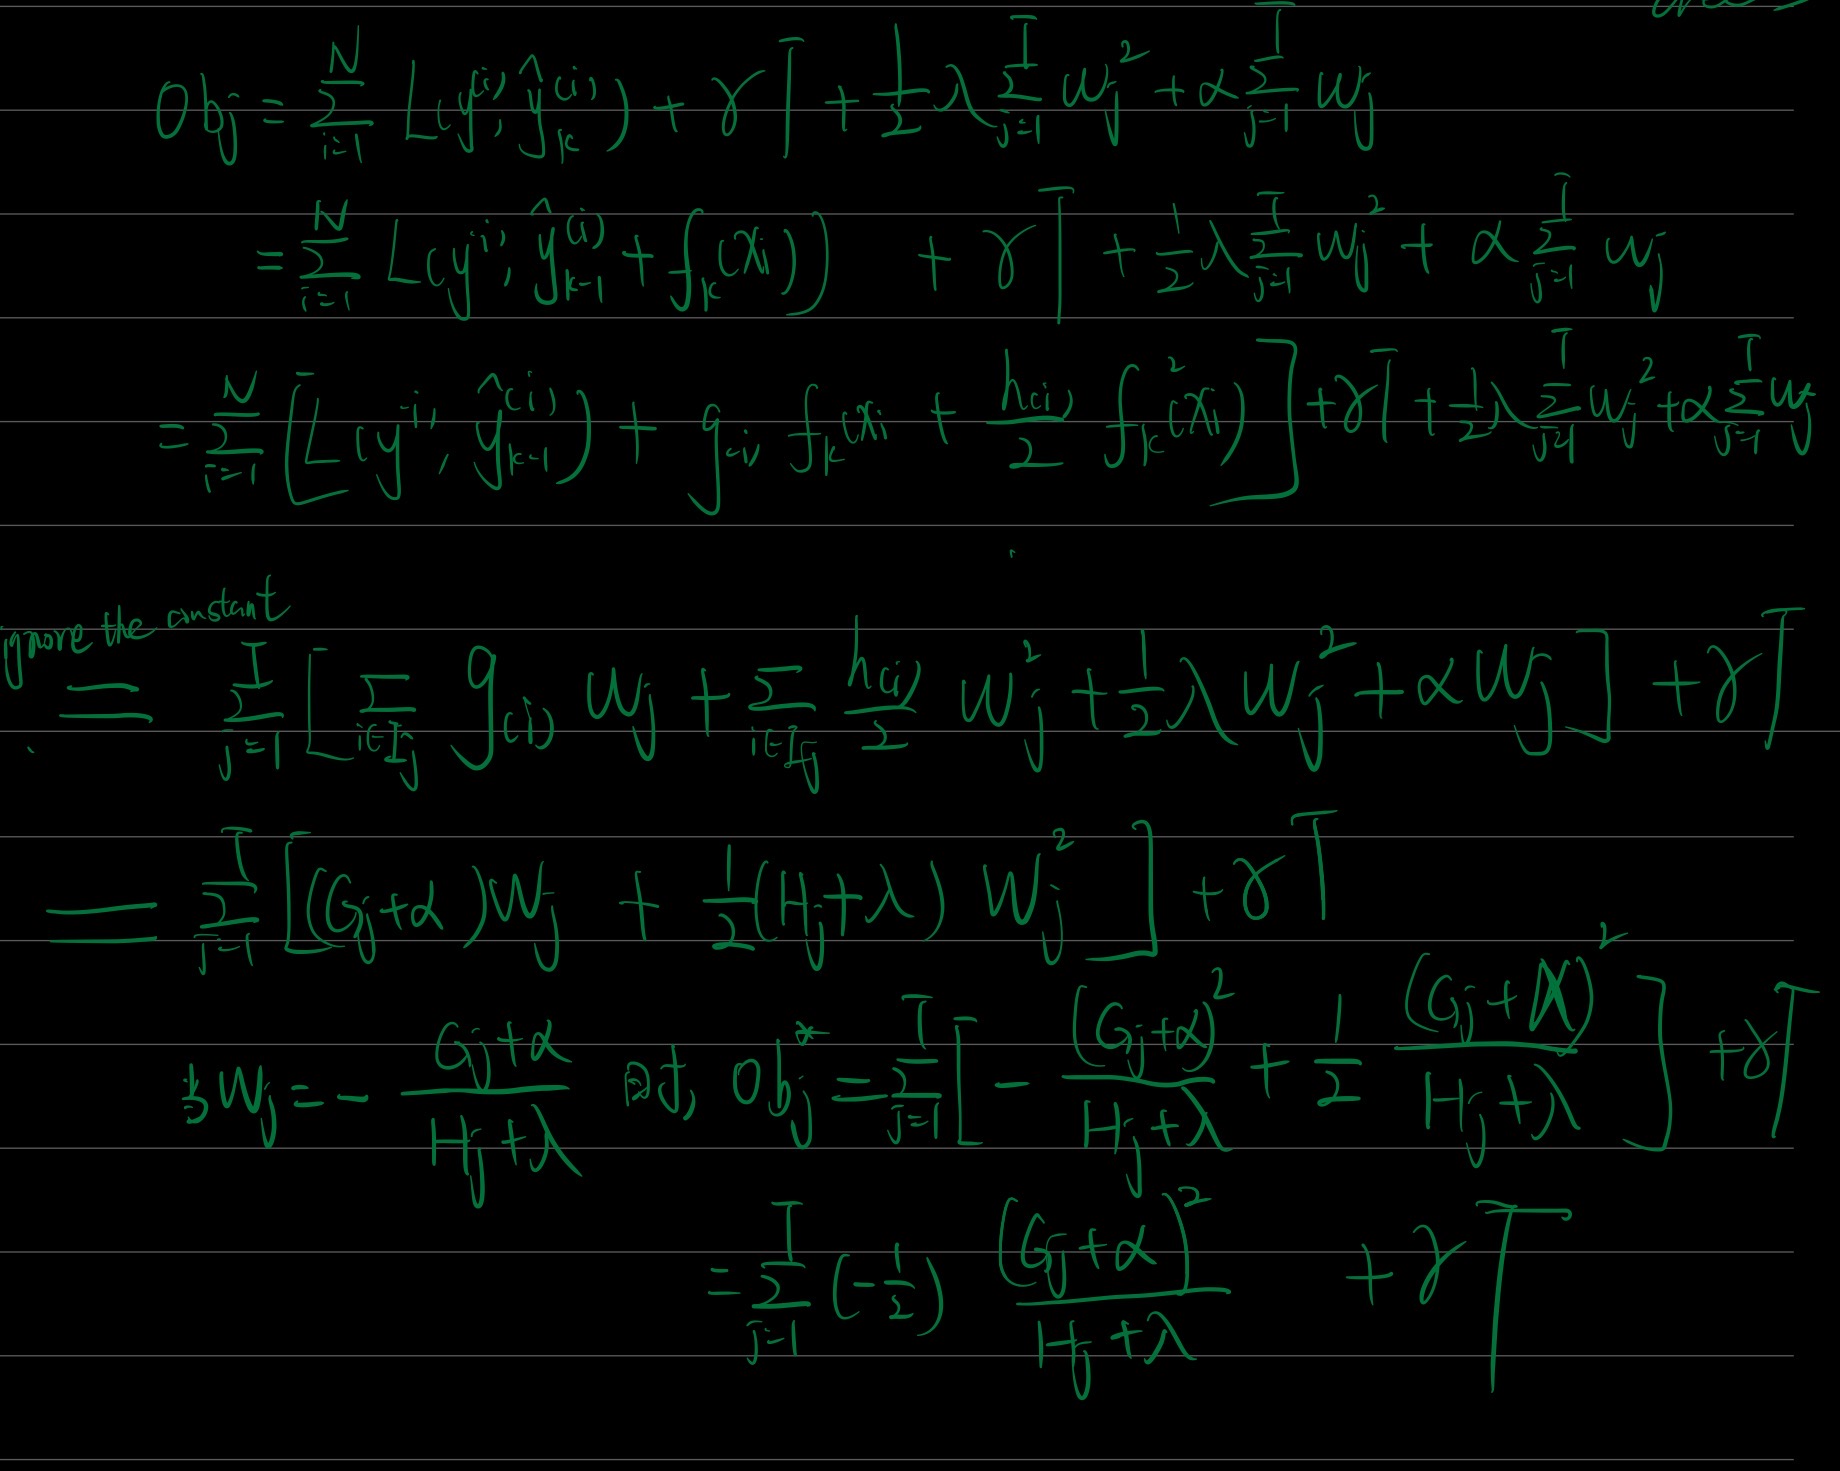 Obj = \sum_{i=1}^{N} L(y^{(i)}, \hat{y}_k^{(i)}) + γT + \frac{1}{2} λ \sum_{j=1}^{T} w_j^2 + α \sum_{j=1}^{T} w_j
= \sum_{i=1}^{N} L(y^{(i)}, \hat{y}_{k-1}^{(i)} + f_k(x_i)) + γT + \frac{1}{2} λ \sum_{j=1}^{T} w_j^2 + α \sum_{j=1}^{T} w_j
= \sum_{i=1}^{N} [L(y^{(i)}, \hat{y}_{k-1}^{(i)}) + g_{(i)} f_k(x_i + \frac{h_{(i)}}{2} f_k^2(x_i)] + γT + \frac{1}{2} λ \sum_{j=1}^{T} w_j^2 + α \sum_{j=1}^{T} w_j
ignore the constant
= \sum_{j=1}^{T} [\sum_{i∈I_j} g_{(i)} w_j + \sum_{i∈I_j} \frac{h_{(i)}}{2} w_j^2 + \frac{1}{2} λ w_j^2 + α w_j] + γT
= \sum_{j=1}^{T} [(G_j+α) w_j + \frac{1}{2}(H_j+λ) w_j^2] + γT
当 w_j = - \frac{G_j+α}{H_j+λ} 时, Obj^* = \sum_{j=1}^{T} [- \frac{(G_j+α)^2}{H_j+λ} + \frac{1}{2} \frac{(G_j+α)^2}{H_j+λ}] + γT
= \sum_{j=1}^{T} (-\frac{1}{2}) \frac{(G_j+α)^2}{H_j+λ} + γT